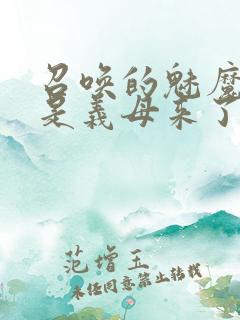 召唤的魅魔
是义母来了
范增玉
未经同意禁止转载